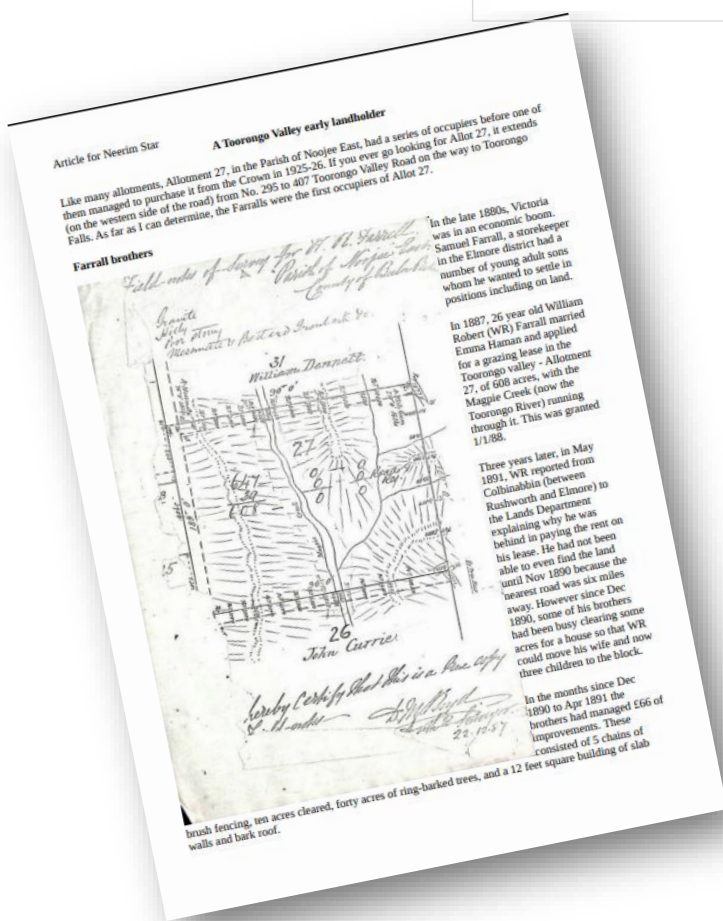 Article for Neerim Star
A Toorongo Valley early landholder
Like many allotments, Allotment 27, in the Parish of Noojee East, had a series of occupiers before one of
them managed to purchase it from the Crown in 1925-26. If you ever go looking for Allot 27, it extends
(on the western side of the road) from No. 295 to 407 Toorongo Valley Road on the way to Toorongo
Falls. As far as I can determine, the Farralls were the first occupiers of Allot 27.
Farrall brothers
Field notes of Survey for W. R. Farrall
Parish of Noojee East
County of
Granite
Hilly
Poor Stony
Messmate &
31
William Dennett
90° 0'
27
0 0
0 0
0 0
647
39
608
26
John Currie
hereby Certify that this is a true copy
22.12.87
In the late 1880s, Victoria
was in an economic boom.
Samuel Farrall, a storekeeper
in the Elmore district had a
number of young adult sons
whom he wanted to settle in
positions including on land.
In 1887, 26 year old William
Robert (WR) Farrall married
Emma Haman and applied
for a grazing lease in the
Toorongo valley - Allotment
27, of 608 acres, with the
Magpie Creek (now the
Toorongo River) running
through it. This was granted
1/1/88.
Three years later, in May
1891, WR reported from
Colbinabbin (between
Rushworth and Elmore) to
the Lands Department
explaining why he was
behind in paying the rent on
his lease. He had not been
able to even find the land
until Nov 1890 because the
nearest road was six miles
away. However since Dec
1890, some of his brothers
had been busy clearing some
acres for a house so that WR
could move his wife and now
three children to the block.
In the months since Dec
1890 to Apr 1891 the
brothers had managed £66 of
improvements. These
consisted of 5 chains of
brush fencing, ten acres cleared, forty acres of ring-barked trees, and a 12 feet square building of slab
walls and bark roof.